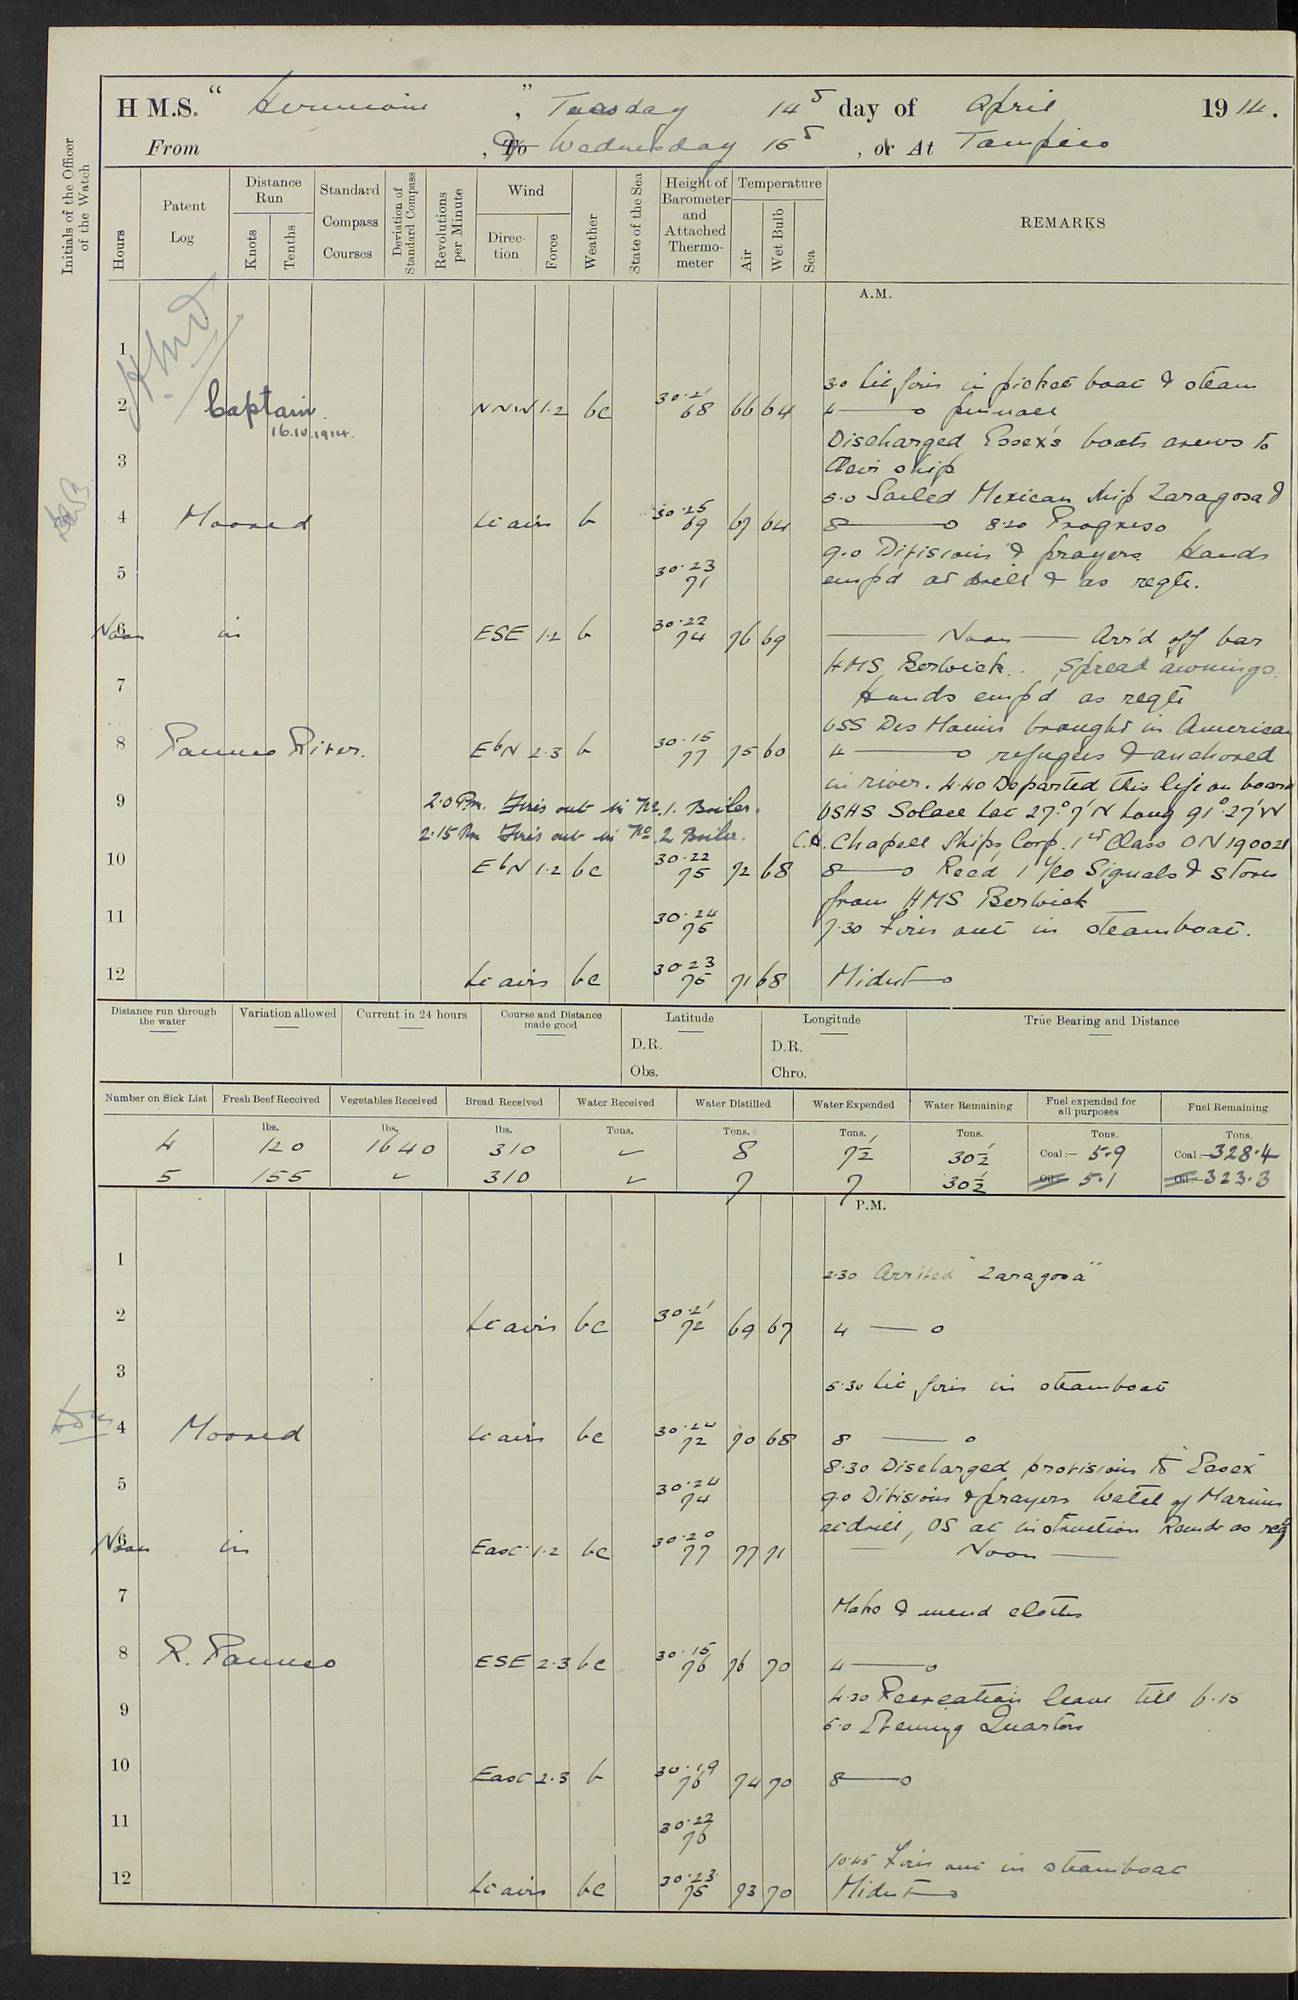 H M.S. " Hermione ", Tuesday 14th day of April 1914.
From , To Wednesday 15th , or At Tampico
Initials of the Officer of the Watch
Hours
Patent Log
Distance Run
Knots
Tenths
Standard Compass Courses
Deviation of Standard Compass
Revolutions per Minute
Wind
Direction
Force
Weather
State of the Sea
Height of Barometer and Attached Thermometer
Temperature
Air
Wet Bulb
Sea
REMARKS
A.M.
1
3.0 Lit fires in picket boat & steam
2 Captain. NNW 1.2 bc 30.21 68 66 64 4 ——o pinnace
16.IV.1914.
Discharged Essex's boats crews to
3 their ship
5.0 Sailed Mexican ship Zaragosa &
4 Moored Lt airs b 30.25 69 67 64 8 ——o 8.20 Progreso
9.0 Divisions & prayers Hands
5 30.23 71 emp'd at drill & as reqte.
6 Noon in ESE 1.2 b 30.22 74 76 69 —— Noon —— Arr'd off bar
HMS Berwick. Spread awnings.
7 Hands emp'd as reqte
USS Des Moines brought in American
8 Panuco River. EbN 2.3 b 30.15 77 75 60 4 ——o refugees & anchored
in river. 4.40 Departed this life on board
9 2.0 Pm. Fires out in No. 1. Boiler. USHS Solace Lat 27° 7' N Long 91° 27' W
2.15 Pm Fires out in No. 2 Boiler. C.A. Chapell Ships Corp. 1st Class ON 190021
10 EbN 1.2 bc 30.22 75 72 68 8 ——o Recd 1 Signals & Stores
from HMS Berwick
11 30.24 75 7.30 Fires out in steamboat.
12 Lt airs bc 30.23 75 71 68 Midnt ——o
Distance run through the water
Variation allowed
Current in 24 hours
Course and Distance made good
Latitude
D.R.
Obs.
Longitude
D.R.
Chro.
True Bearing and Distance
Number on Sick List
Fresh Beef Received
Vegetables Received
Bread Received
Water Received
Water Distilled
Water Expended
Water Remaining
Fuel expended for all purposes
Fuel Remaining
lbs. lbs. lbs. Tons. Tons. Tons. Tons. Tons. Tons.
4 120 1640 310 ✓ 8 7½ 30½ Coal :— 5.9 Coal :— 328.4
5 155 ✓ 310 ✓ 7 7 30½ Oil :— 5.1 Oil :— 323.3
P.M.
1
2.30 Arrived "Zaragosa"
2 Lt airs bc 30.21 72 69 67 4 —— o
3
5.30 Lit fires in steamboat
4 Moored Lt airs bc 30.24 72 70 68 8 —— o
8.30 Discharged provisions to "Essex"
5 30.24 74 9.0 Divisions & prayers Watch of Marines
at drill, OS at instruction Remdr as req
6 Noon in East 1.2 bc 30.20 77 77 71 —— Noon ——
7
Make & mend clothes
8 R. Panuco ESE 2.3 bc 30.15 76 76 70 4 ——o
4.30 Recreation leave till 6.15
9 5.0 Evening Quarters
10 East 2.3 b 30.19 76 74 70 8 ——o
11 30.22 76
10.45 Fires out in steamboat
12 Lt airs bc 30.23 75 73 70 Midnt ——o